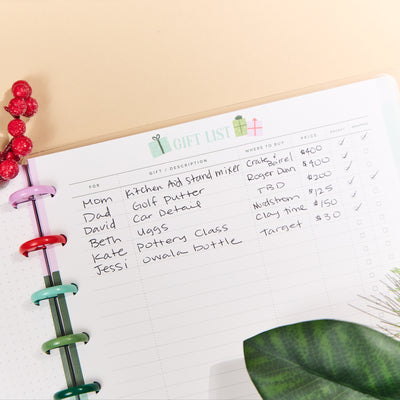 GIFT LIST
FOR GIFT / DESCRIPTION WHERE TO BUY PRICE
Mom Kitchen Aid stand mixer Crate & Barrel $400
Dad Golf Putter Roger Dan $400
David Car Detail TBD $200
Beth Uggs Nordstrom $125
Kate Pottery Class Clay time $150
Jessi Owala bottle Target $30